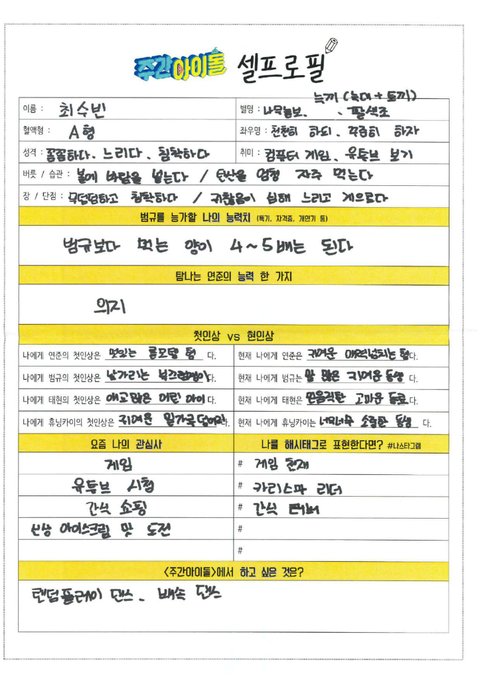 주간아이돌 셀프로필
늑끼 (늑대 + 토끼)
이름 : 최수빈
별명 : 나무늘보, 팔색조
혈액형 : A형
좌우명 : 천천히 하되, 꾸준히 하자
성격 : 꼼꼼하다. 느리다. 침착하다
취미 : 컴퓨터 게임, 유튜브 보기
버릇 / 습관 : 볼에 바람을 넣는다 / 탄산을 엄청 자주 먹는다
장 / 단점 : 무던하고 침착하다 / 귀찮음이 심해 느리고 게으르다
범규를 능가할 나의 능력치 (특기, 자격증, 개인기 등)
범규보다 먹는 양이 4~5배는 된다
탐나는 연준의 능력 한 가지
의지
첫인상 vs 현인상
나에게 연준의 첫인상은 멋있는 롤모델 형 다.
현재 나에게 연준은 귀여운 매력넘치는 형 다.
나에게 범규의 첫인상은 낯가리는 부끄럼쟁이 다.
현재 나에게 범규는 말 많은 귀여운 동생 다.
나에게 태현의 첫인상은 애교많은 어린 아이 다.
현재 나에게 태현은 믿음직한 고마운 동료 다.
나에게 휴닝카이의 첫인상은 귀여운 밀가루덩어리 다.
현재 나에게 휴닝카이는 너무너무 소중한 동생 다.
요즘 나의 관심사
나를 해시태그로 표현한다면? #나스타그램
게임
# 게임 천재
유튜브 시청
# 카리스마 리더
간식 쇼핑
# 간식 러버
신상 아이스크림 맛 도전
#
#
<주간아이돌>에서 하고 싶은 것은?
랜덤플레이 댄스. 배속 댄스